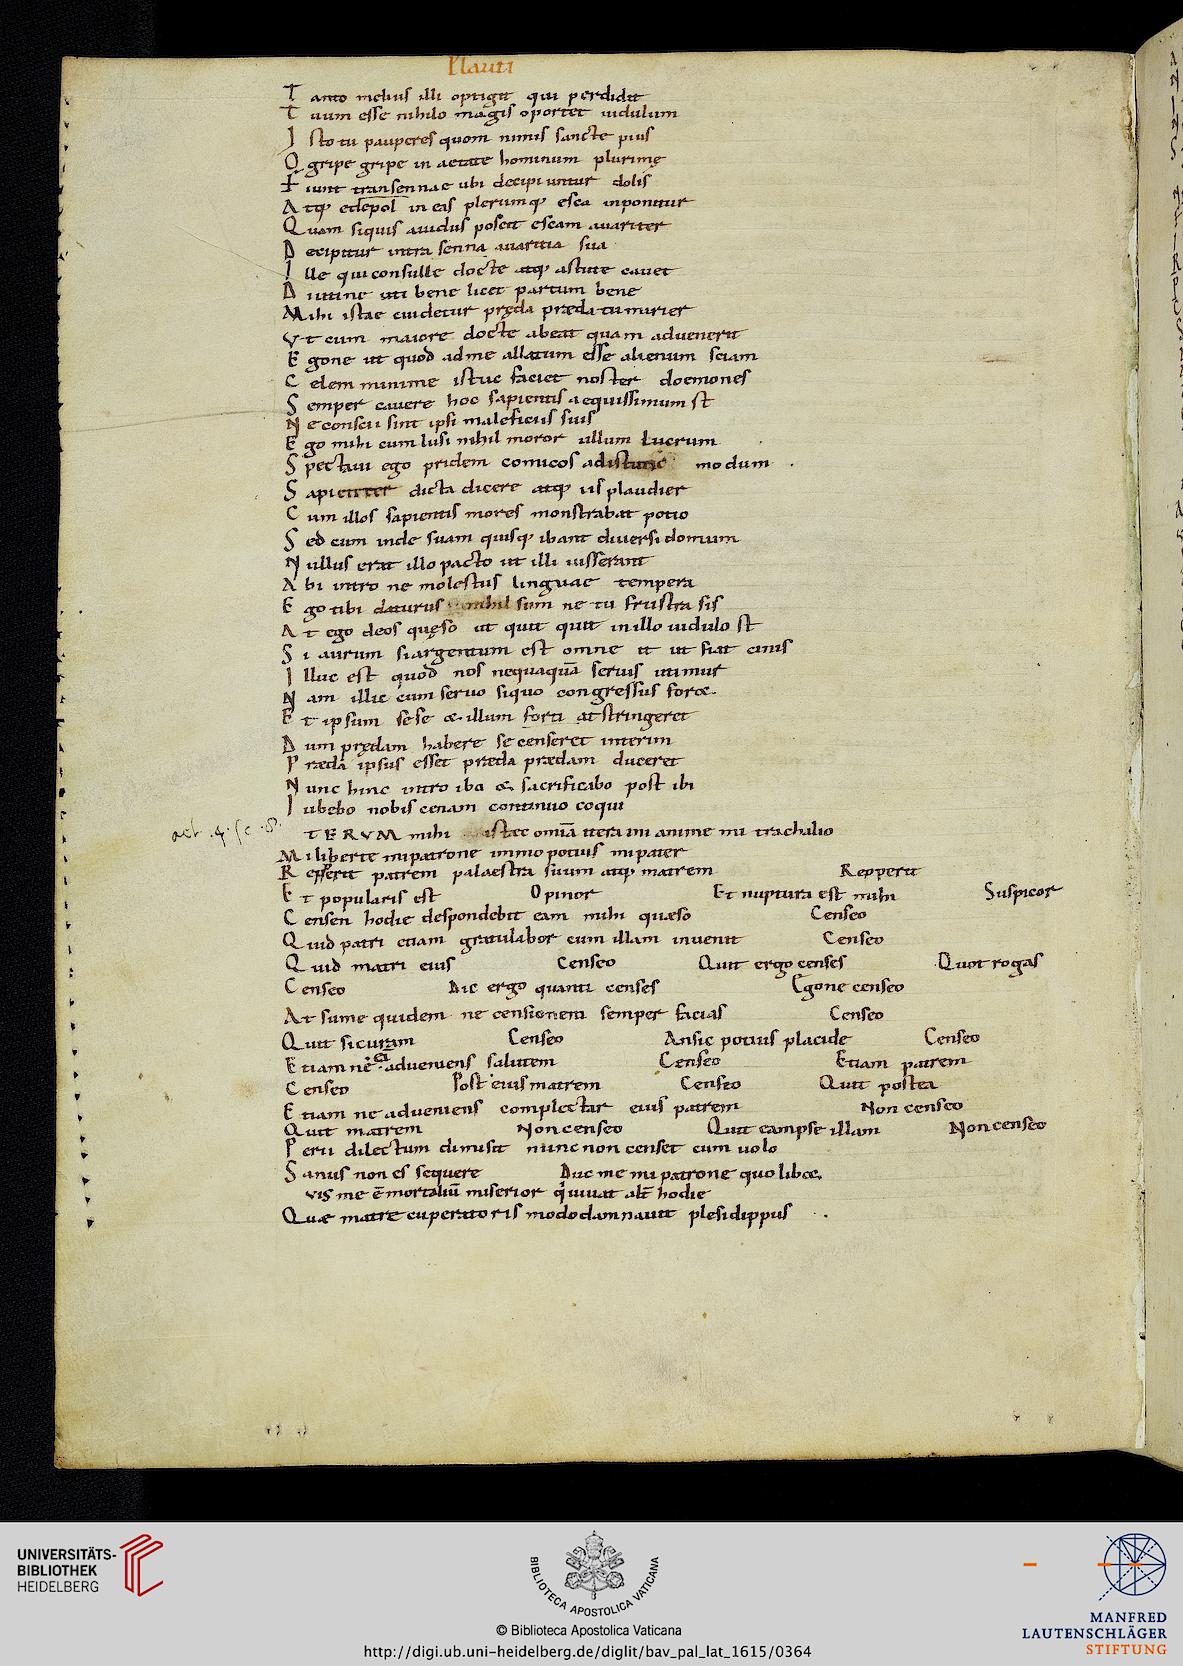 Plauti
Tanto melius illi optigit qui perdidit
Tuum esse nihilo magis oportet uidulum
Isto tu pauperes quom nimis sancte pius
O gripe gripe in aetate hominum plurimę
Fiunt transennae ubi decipiuntur dolis
Atq; edepol in eas plerumq; esca inponitur
Quam siquis auidus poscit escam auariter
Decipitur intra senna auaritia sua
Ille qui consulle docte atq; astute cauet
Diutine uti bene licet partum bene
Mihi istae euidetur pręda præda tumirier
Vt cum maiore docte abeat quam aduenerit
Egone ut quod ad me allatum esse alienum sciam
Celem minime istuc faciet noster doemones
Semper cauere hoc sapientis aequissimum st
Ne conscii sint ipsi maleficiis suis
Ego mihi cum lusi nihil moror ullum lucrum
Spectaui ego pridem comicos ad istunc modum
Sapienter dicta dicere atq; iis plaudier
Cum illos sapientis mores monstrabat potio
Sed cum inde suam quisq; ibant diuersi domum
Nullus erat illo pacto ut illi iusserant
Abi intro ne molestus linguae tempera
Ego tibi daturus nihil sum ne tu frustra sis
At ego deos quęso ut quit quit in illo uidulo st
Si aurum si argentum est omne it ut fiat cinis
Illuc est quod nos nequaquā seruis utimur
Nam illic cum seruo siquo congressus foret
Et ipsum sese & illum furti atstringeret
Dum prędam habere se censeret interim
Præda ipsus esset præda prædam duceret
Nunc hinc intro ibo & sacrificabo post ibi
Iubebo nobis cenam continuo coqui
act. 4. sc. 8.
TERVM mihi istaec omīa itera mi anime mi trachalio
Mi liberte mi patrone immo potius mi pater
Repperit patrem palaestra suum atq; matrem Repperit
Et popularis est Opinor Et nuptura est mihi Suspicor
Censen hodie despondebit eam mihi quæso Censeo
Quid patri etiam gratulabor cum illam inuenit Censeo
Quid matri eius Censeo Quit ergo censes Quot rogas
Censeo Dic ergo quanti censes Egone censeo
At sume quidem ne censionem semper facias Censeo
Quit si curam Censeo An sic potius placide Censeo
Etiam ne ea adueniens salutem Censeo Etiam patrem
Censeo Post eius matrem Censeo Quit postea
Etiam ne adueniens complectar eius patrem Non censeo
Quit matrem Non censeo Quit eampse illam Non censeo
Perii dilectum dimisit nunc non censet cum uolo
Sanus non es sequere Duc me mi patrone quo libet
vis me ē mortaliū miserior q̇ uiuat alt̄ hodie
Quæ matre cuperatoris modo damnauit plesidippus
UNIVERSITÄTS-
BIBLIOTHEK
HEIDELBERG
BIBLIOTECA APOSTOLICA VATICANA
© Biblioteca Apostolica Vaticana
http://digi.ub.uni-heidelberg.de/diglit/bav_pal_lat_1615/0364
MANFRED
LAUTENSCHLÄGER
STIFTUNG